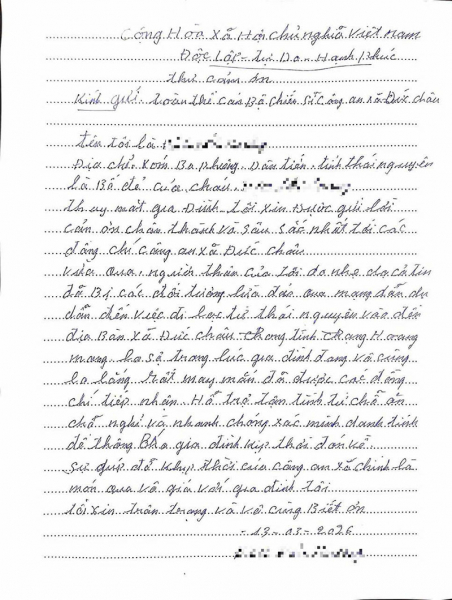 Cộng Hòa Xã Hội chủ nghĩa Việt Nam
Độc Lập - Tự Do - Hạnh Phúc
thư cảm ơn
Kính gửi: toàn thể cán Bộ chiến sĩ công an xã Đức châu
tên tôi là
Địa chỉ: xóm Ba phường. Dân tiến. tỉnh thái nguyên
là Bố đẻ của cháu.
thay mặt gia Đình tôi xin Được gửi lời
cảm ơn chân thành và sâu sắc nhất tới các
đồng chí công an xã Đức châu
vừa qua, người thân của tôi do nhẹ dạ cả tin
đã Bị các đối tượng lừa đảo qua mạng dẫn dụ
dẫn đến việc đi lạc từ thái nguyên vào đến
địa Bàn xã Đức châu trong tình trạng Hoang
mang lo sợ trong lúc gia đình đang vô cùng
lo lắng rất may mắn đã được các đồng
chí tiếp nhận. Hỗ trợ tận tình từ chỗ ăn
chỗ nghỉ và nhanh chóng xác minh danh tính
để thông Báo gia đình kịp thời đón về
sự giúp đỡ kịp thời của công an xã chính là
món quà vô giá với gia đình tôi
tôi xin trân trọng và vô cùng Biết ơn
- 13 - 03 - 2026